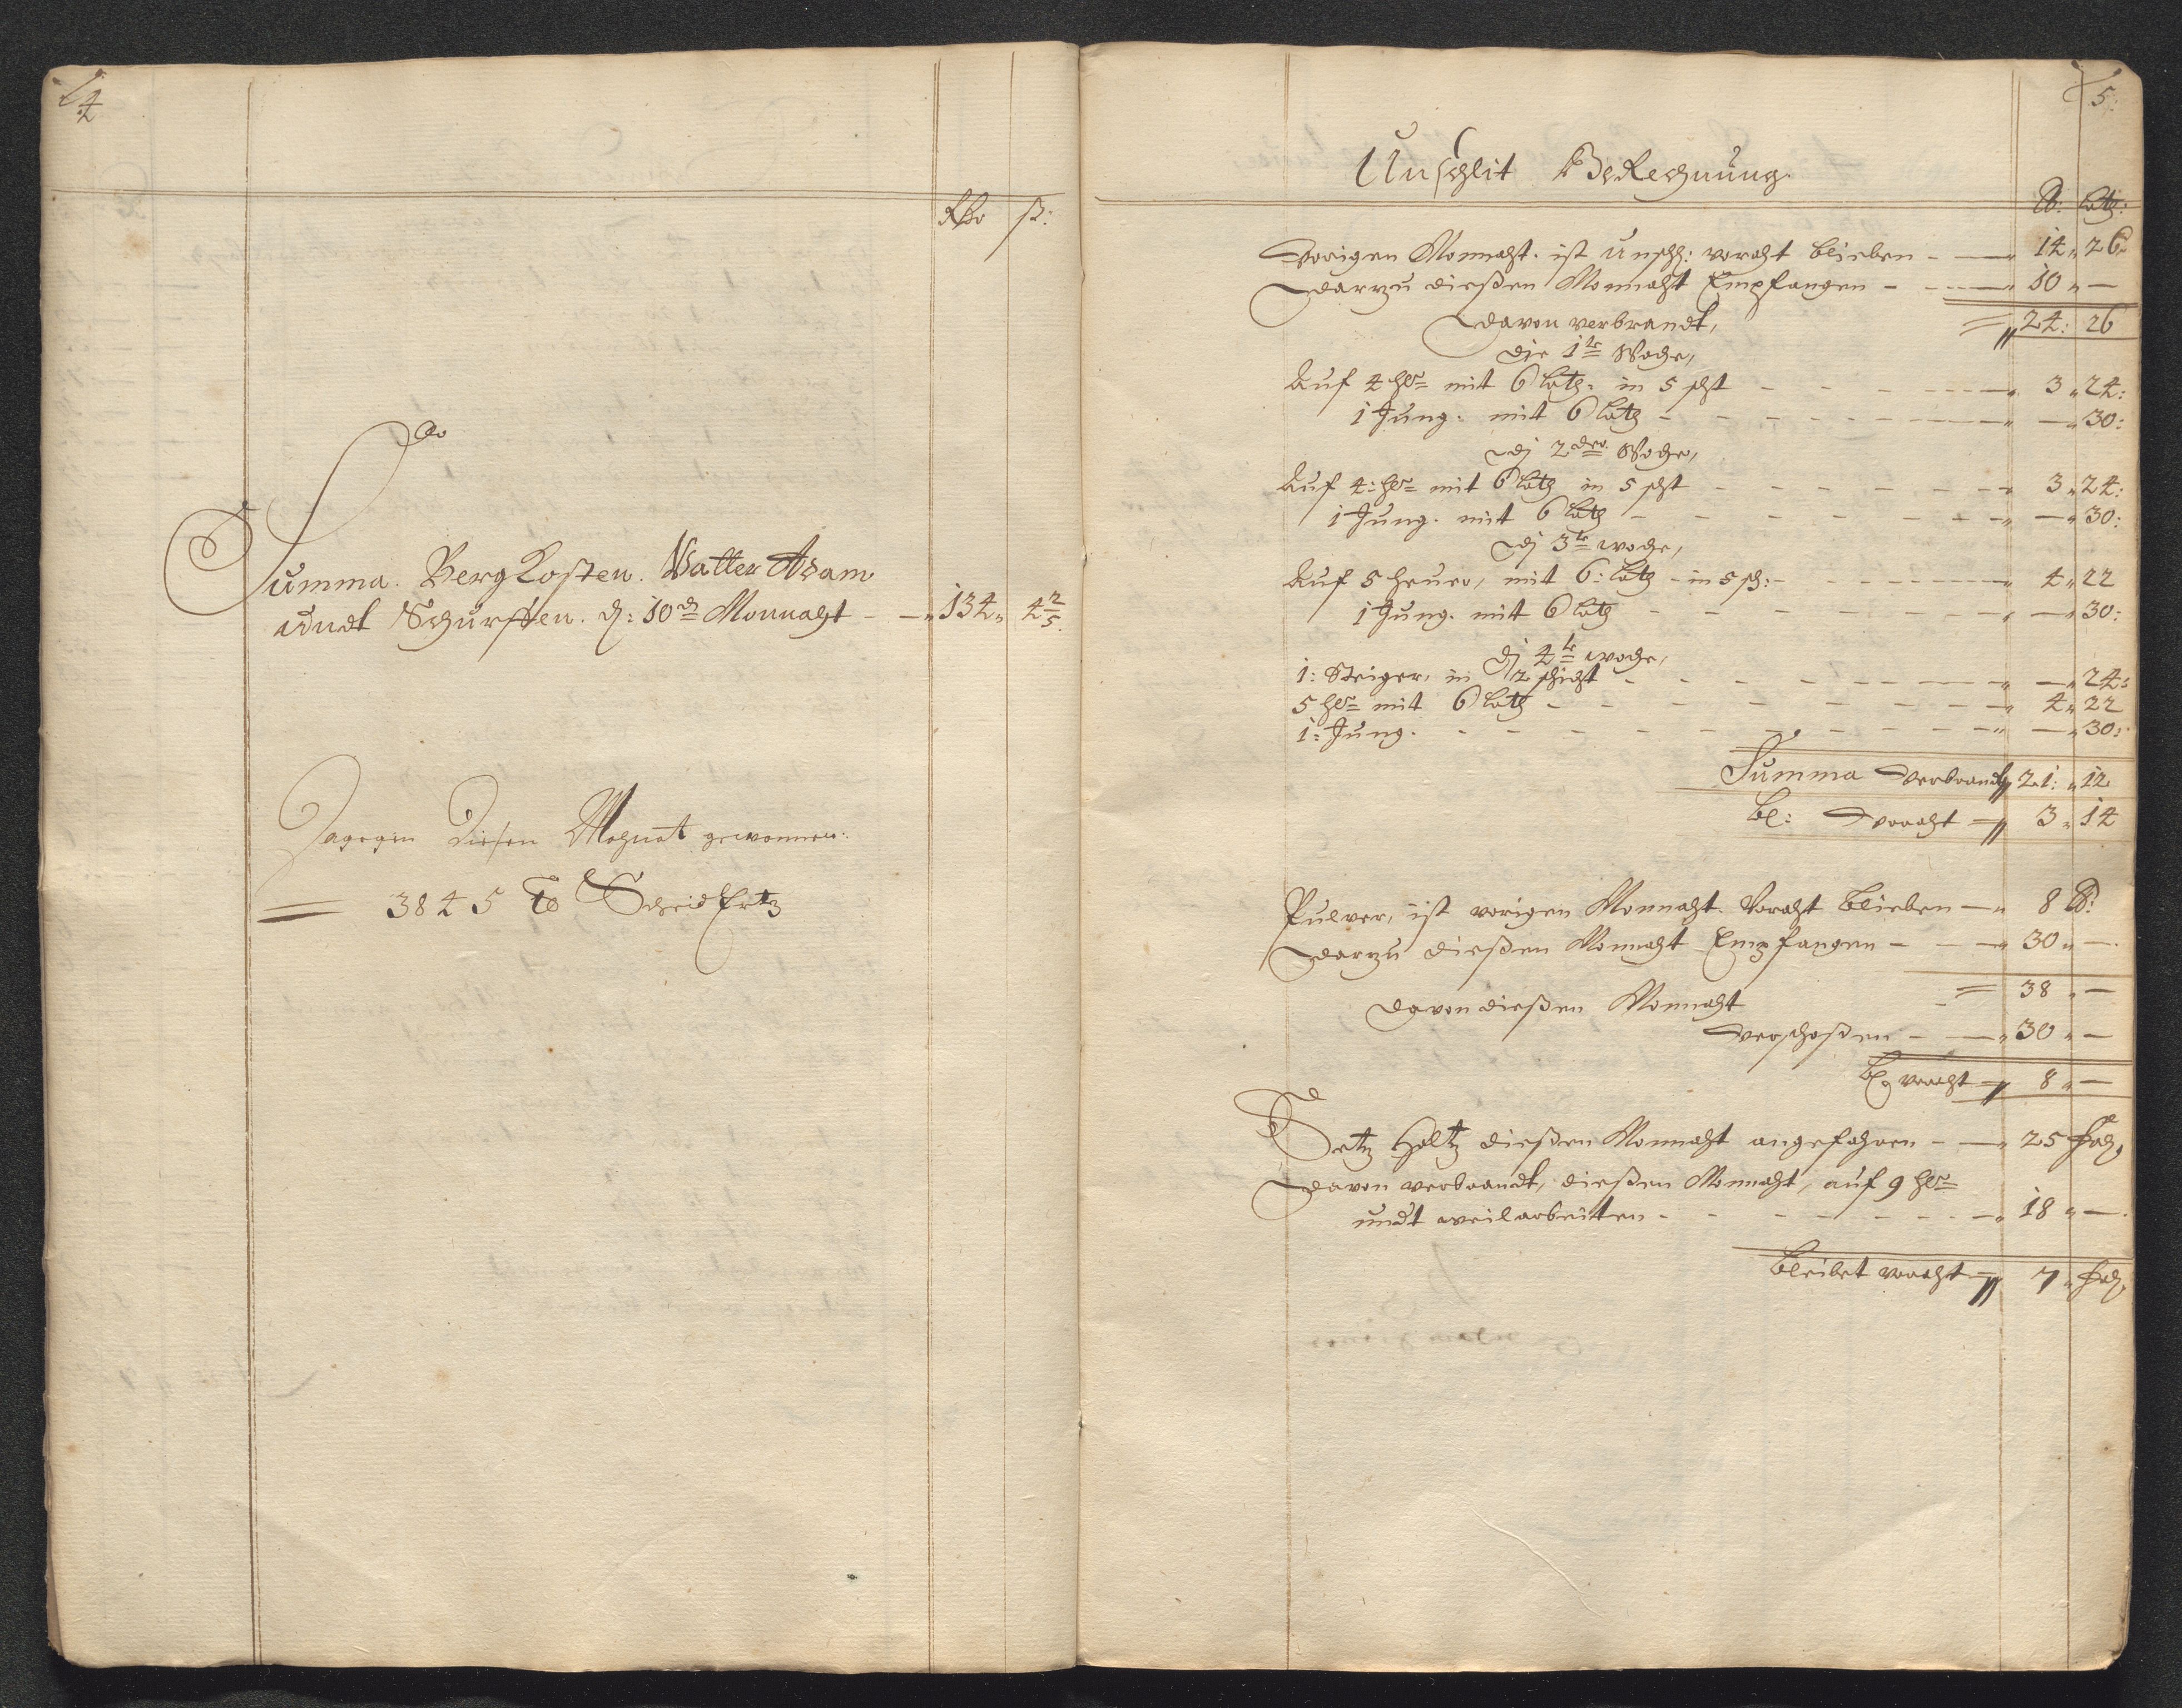 4
Rthr ß:
Summa. Bergkosten. Vatter Adam
undt Schurffen. d: 10d Monnaht - - 134 " 4 2/5
Dagegen Diesen Mohnat gewonnen:
3845 Scheid Ertz
5:
Unschlit BeRechnung
lb: Loth:
Vorigen Monnaht. ist Unschl: voraht blieben - - 14 " 26
Darzu dießen Monnaht Empfangen - - 10 " -
Davon verbrandt, 24: 26
die 1te Woche,
Auf 4 hr mit 6 Loth. in 5 scht - - 3 " 24:
1 Jung. mit 6 Loth - - - " 30:
Dj 2der Woche,
Auf 4: hr mit 6 Loth in 5 scht - - 3 " 24:
1 Jung. mit 6 Loth - - - " 30:
Dj 3te woche,
Auf 5 heuer, mit 6: Loth - in 5 sch: - - 4 " 22
1 Jung. mit 6 Loth - - - " 30:
Dj 4te woche,
1: Steiger, in 2 schicht - - - " 24:
5 hr mit 6 Loth - - 4 " 22
1: Jung. - - - " 30:
Summa Verbrandt 21: " 12
bl: Voraht 3 " 14
Pulver, ist vorigen Monnaht. Voraht blieben - " 8 lb:
Darzu dießen Monnaht Empfangen - - " 30 " -
38 " -
Davon dießen Monnaht
Verschoßen - - " 30 " -
bl voraht 8 " -
Setz Holtz dießen Monnaht angefahren - - " 25 fad,
Davon verbrandt, dießen Monnaht, auf 9 hr
undt weilarbeitten - - " 18 " -
bleibet voraht 7 " fad,